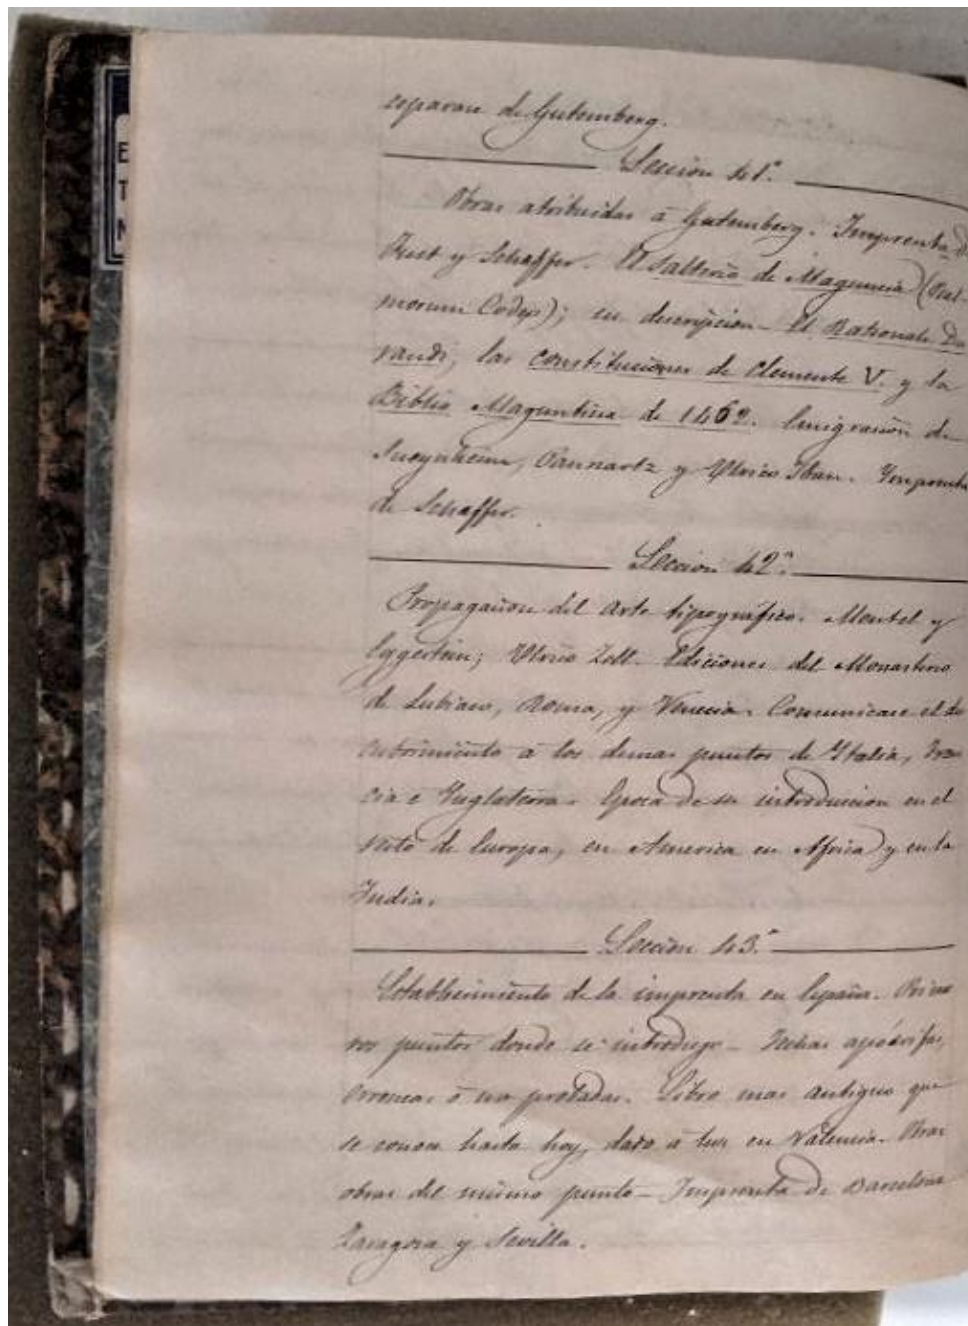 separase de Gutemberg.
Leccion 41ª.
Obras atribuidas á Gutemberg. Imprenta de
Fust y Schaffer. El Salterio de Maguncia (Psal-
morum Codex); su descripcion - El Rationale Du
randi, las constituciones de Clemente V. y la
Biblia Maguntina de 1462. Emigracion de
Sweynheim, Pannartz y Ulrico Han. Imprenta
de Schaffer.
Leccion 42ª.
Propagacion del Arte tipográfico. Mentel y
Eggestein; Ulrico Zell. Ediciones del Monasterio
de Subiaco, Roma, y Venecia. Comunicase el des
cubrimiento á los demas puntos de Italia, Fran
cia é Inglaterra. Epoca de su introduccion en el
resto de Europa, en America en Africa y en la
India.
Leccion 43ª.
Establecimiento de la imprenta en España. Prime
ros puntos donde se introdujo - Fechas apócrifas,
erroneas ó no probadas. Libro mas antiguo que
se conoce hasta hoy, dado á luz en Valencia. Otras
obras del mismo punto - Imprenta de Barcelona
Zaragoza y Sevilla.
E
T
N